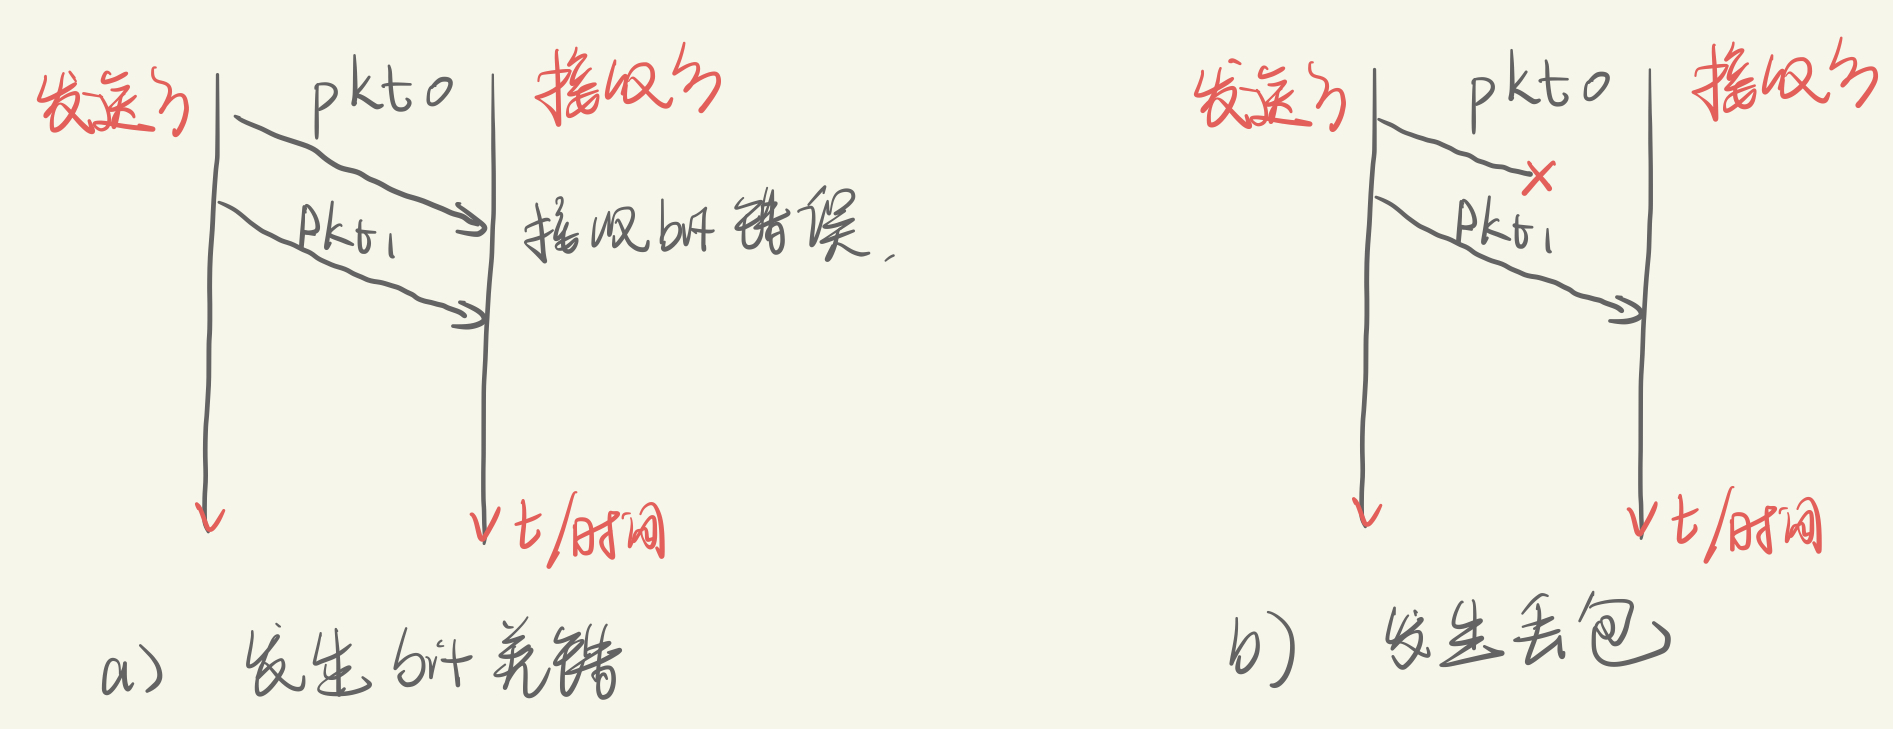 发送方
pkt0
接收方
接收bit错误.
pkt1
t/时间
a) 发生bit差错
发送方
pkt0
接收方
pkt1
t/时间
b) 发生丢包